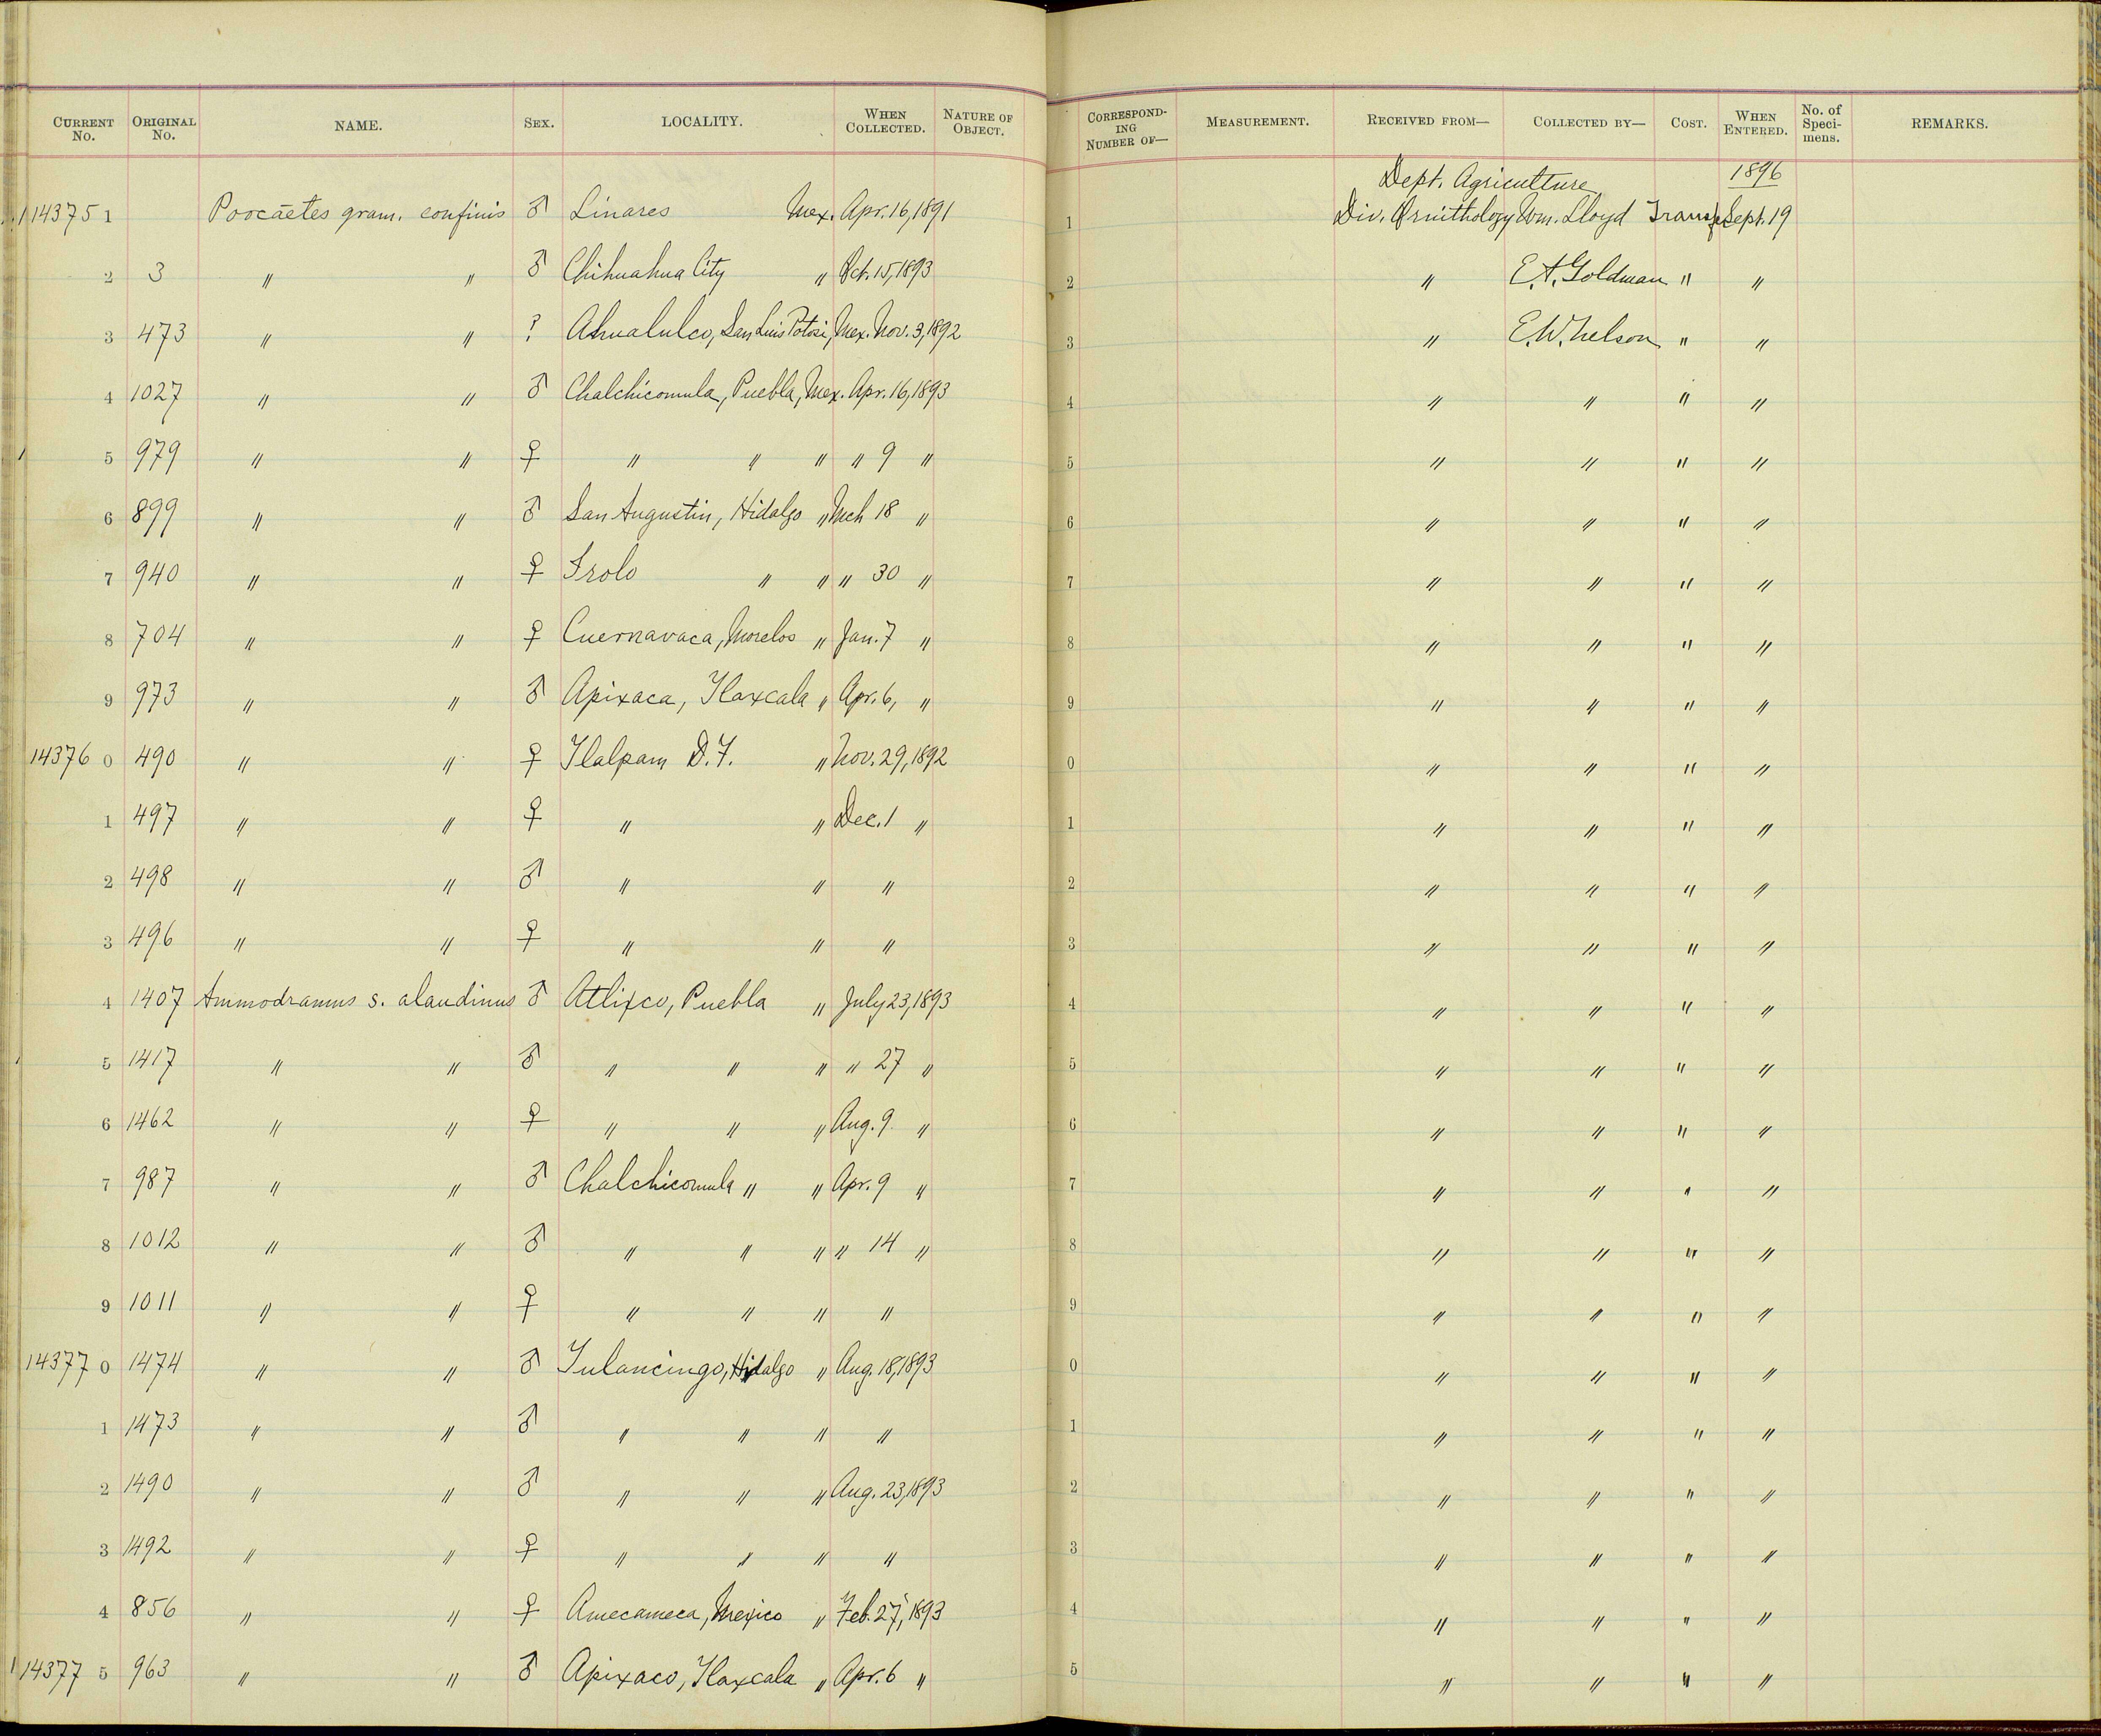 CURRENT No. ORIGINAL No. NAME. SEX. LOCALITY. WHEN COLLECTED. NATURE OF OBJECT. CORRESPONDING NUMBER OF— MEASUREMENT. RECEIVED FROM— COLLECTED BY— COST. WHEN ENTERED. No. of Specimens. REMARKS.
Dept. Agriculture 1896
114375 1 Poocaetes gram. confinis ♂ Linares Mex. Apr. 16, 1891 1 Div. Ornithology Wm. Lloyd Transf. Sept. 19
2 3 " " ♂ Chihuahua City " Oct. 15, 1893 2 " E.A. Goldman " "
3 473 " " ? Ahualulco, San Luis Potosi, Mex. Nov. 3, 1892 3 " E.W. Nelson " "
4 1027 " " ♂ Chalchicomula, Puebla, Mex. Apr. 16, 1893 4 " " " "
5 979 " " ♀ " " " " 9 " 5 " " " "
6 899 " " ♂ San Augustin, Hidalgo " Mch 18 " 6 " " " "
7 940 " " ♀ Irolo " " " 30 " 7 " " " "
8 704 " " ♀ Cuernavaca, Morelos " Jan. 7 " 8 " " " "
9 973 " " ♂ Apixaca, Tlaxcala " Apr. 6, " 9 " " " "
14376 0 490 " " ♀ Tlalpam D.F. " Nov. 29, 1892 0 " " " "
1 497 " " ♀ " " Dec. 1 " 1 " " " "
2 498 " " ♂ " " " 2 " " " "
3 496 " " ♀ " " " 3 " " " "
4 1407 Ammodramus s. alaudinus ♂ Atlixco, Puebla " July 23, 1893 4 " " " "
5 1417 " " ♂ " " " " 27 " 5 " " " "
6 1462 " " ♀ " " " Aug. 9 " 6 " " " "
7 987 " " ♂ Chalchicomula " " Apr. 9 " 7 " " " "
8 1012 " " ♂ " " " " 14 " 8 " " " "
9 1011 " " ♀ " " " " 9 " " " "
14377 0 1474 " " ♂ Tulancingo, Hidalgo " Aug. 18, 1893 0 " " " "
1 1473 " " ♂ " " " " 1 " " " "
2 1490 " " ♂ " " " Aug. 23, 1893 2 " " " "
3 1492 " " ♀ " " " " 3 " " " "
4 856 " " ♀ Amecameca, Mexico " Feb. 27, 1893 4 " " " "
114377 5 963 " " ♂ Apixaco, Tlaxcala " Apr. 6 " 5 " " " "